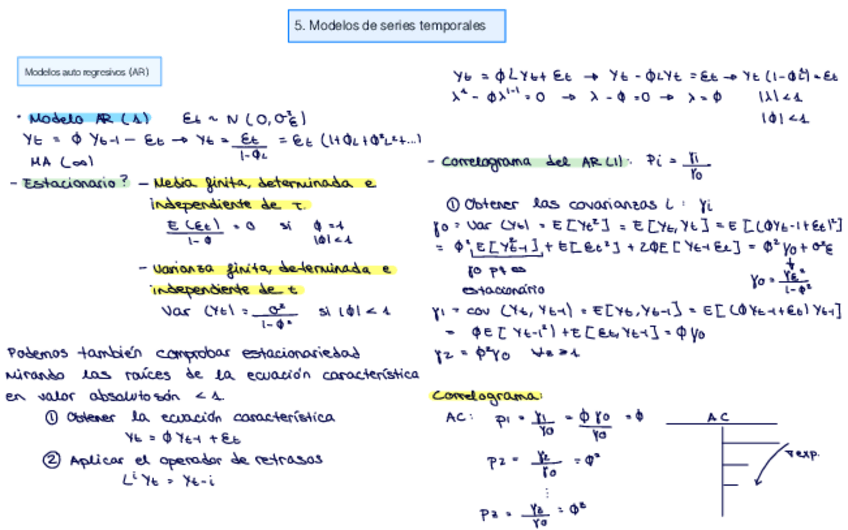 5. Modelos de series temporales
Modelos auto regresivos (AR)
· Modelo AR (1)   εt ~ N (0, σ²ε)
Yt = ϕ Yt-1 - εt → Yt = εt / (1-ϕL) = εt (1+ϕL+ϕ²L²+...)
MA (∞)
- Estacionario? - Media finita, determinada e
independiente de τ.
E(εt) / (1-ϕ) = 0   si   ϕ=1
|ϕ|<1
- Varianza finita, determinada e
independiente de t
Var (Yt) = σ² / (1-ϕ²)   si |ϕ| < 1
Podemos también comprobar estacionariedad
mirando las raíces de la ecuación característica
en valor absoluto són < 1.
① Obtener la ecuación característica
Yt = ϕ Yt-1 + εt
② Aplicar el operador de retrasos
Lⁱ Yt = Yt-i
Yt = ϕ L Yt + εt → Yt - ϕLYt = εt → Yt (1-ϕL) = εt
λ¹ - ϕλ¹⁻¹ = 0 → λ - ϕ = 0 → λ = ϕ   |λ| < 1
|ϕ| < 1
- Correlograma del AR(1): Pi = γi / γ0
① Obtener las covarianzas i : γi
γ0 = Var (Yt) = E[Yt²] = E[Yt, Yt] = E[(ϕYt-1+εt)²]
= ϕ² E[Y²t-1] + E[εt²] + 2ϕE[Yt-1 εt] = ϕ² γ0 + σ²ε
γ0 pt es
estacionario
γ1 = cov (Yt, Yt-1) = E[Yt, Yt-1] = E[(ϕYt-1+εt) Yt-1]
= ϕE[Yt-1²] + E[εt, Yt-1] = ϕγ0
γ2 = ϕ²γ0
Correlograma:
AC: p1 = γ1 / γ0 = ϕγ0 / γ0 = ϕ
AC
exp.
p2 = γ2 / γ0 = ϕ²
⋮